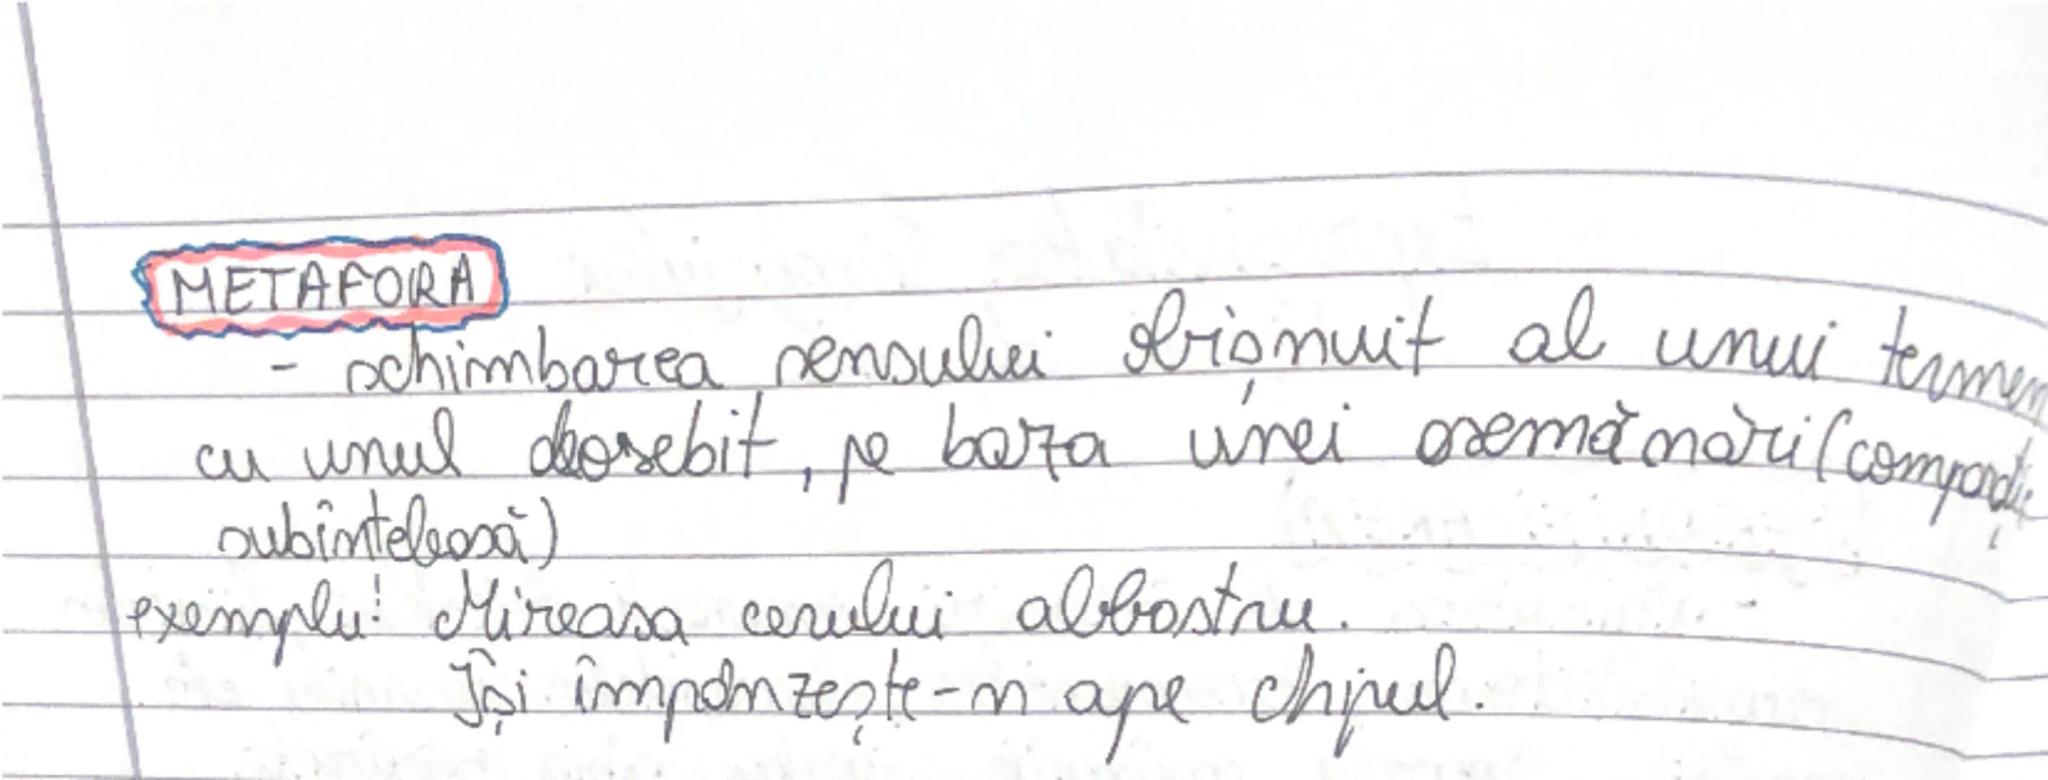 METAFORA
- schimbarea sensului obișnuit al unui termen
cu unul deosebit, pe baza unei asemănări (comparație
subînteleasă)
exemplu: Mireasa cerului albastru.
Își împânzește-n ape chipul.